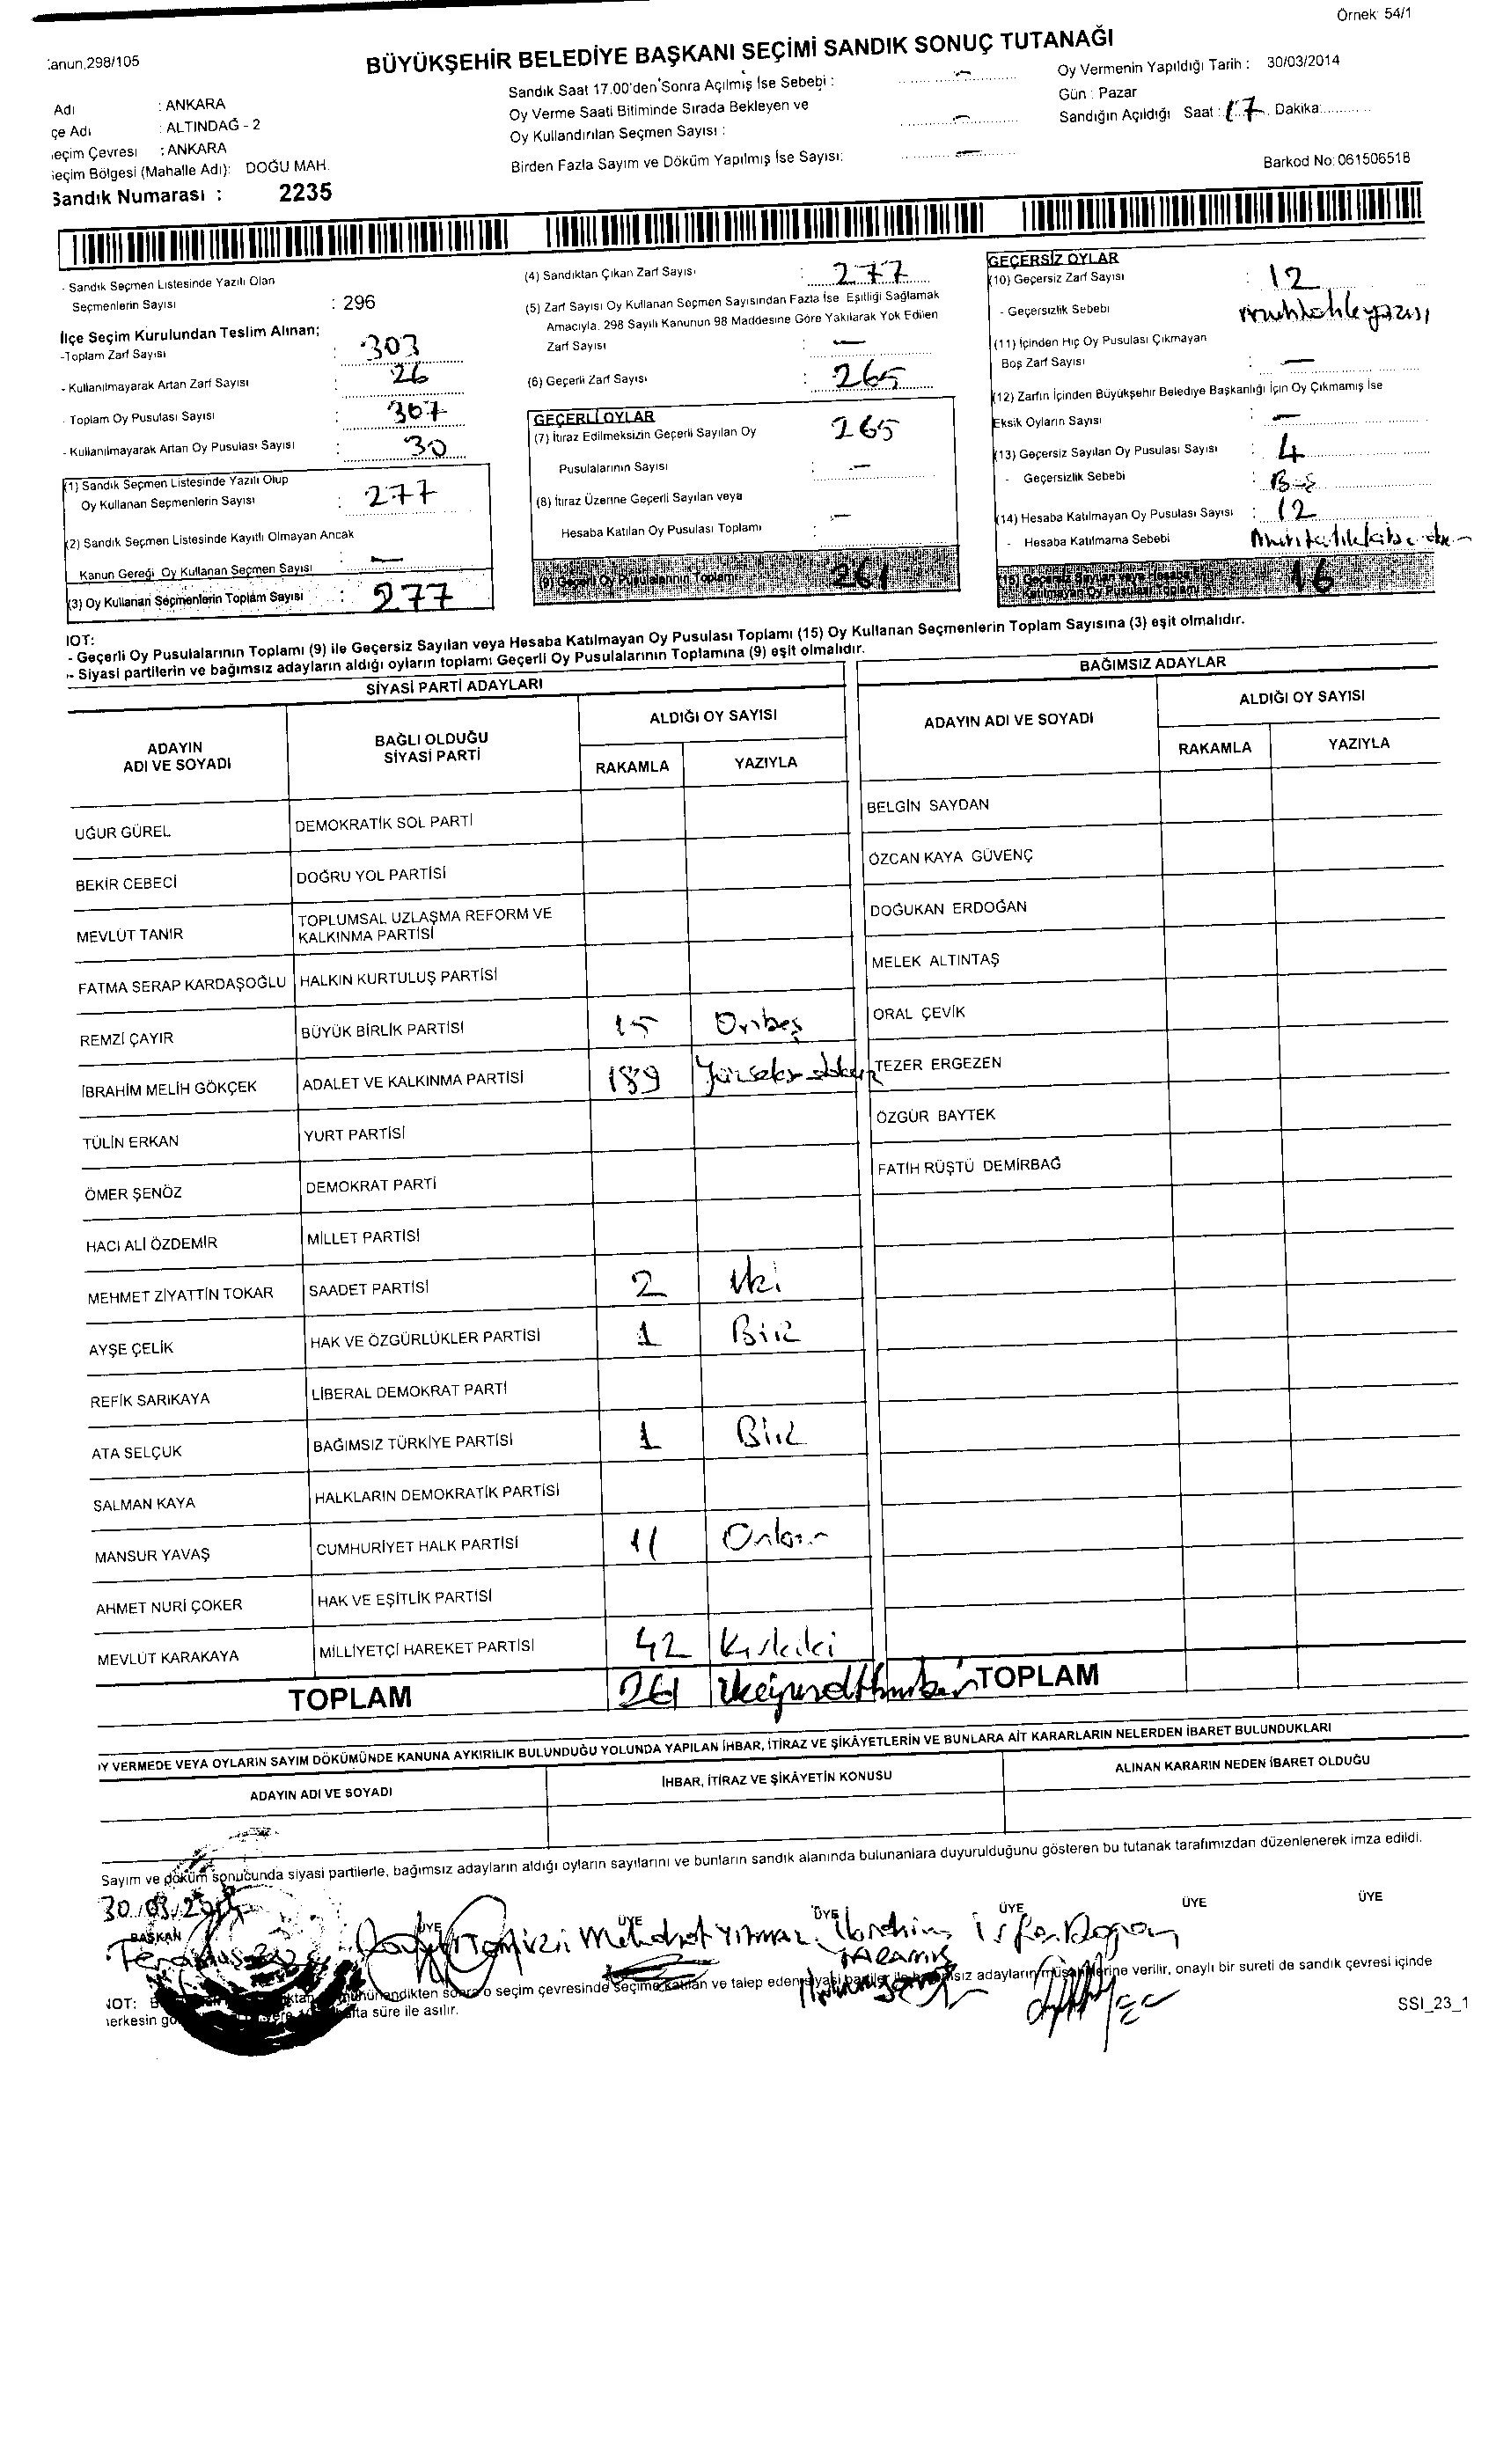 Örnek: 54/1
BÜYÜKŞEHİR BELEDİYE BAŞKANI SEÇİMİ SANDIK SONUÇ TUTANAĞI
anun,298/105
Adı : ANKARA
çe Adı : ALTINDAĞ - 2
eçim Çevresi : ANKARA
eçim Bölgesi (Mahalle Adı): DOĞU MAH.
Sandık Numarası : 2235
Sandık Saat 17.00'den Sonra Açılmış İse Sebebi : —
Oy Verme Saati Bitiminde Sırada Bekleyen ve
Oy Kullandırılan Seçmen Sayısı : —
Birden Fazla Sayım ve Döküm Yapılmış İse Sayısı: —
Oy Vermenin Yapıldığı Tarih : 30/03/2014
Gün : Pazar
Sandığın Açıldığı Saat : 17 Dakika:
Barkod No: 061506518
- Sandık Seçmen Listesinde Yazılı Olan
Seçmenlerin Sayısı : 296
İlçe Seçim Kurulundan Teslim Alınan;
-Toplam Zarf Sayısı : 303
- Kullanılmayarak Artan Zarf Sayısı : 26
- Toplam Oy Pusulası Sayısı : 307
- Kullanılmayarak Artan Oy Pusulası Sayısı : 30
(1) Sandık Seçmen Listesinde Yazılı Olup
Oy Kullanan Seçmenlerin Sayısı : 277
(2) Sandık Seçmen Listesinde Kayıtlı Olmayan Ancak
Kanun Gereği Oy Kullanan Seçmen Sayısı : —
(3) Oy Kullanan Seçmenlerin Toplam Sayısı : 277
(4) Sandıktan Çıkan Zarf Sayısı : 277
(5) Zarf Sayısı Oy Kullanan Seçmen Sayısından Fazla İse Eşitliği Sağlamak
Amacıyla, 298 Sayılı Kanunun 98 Maddesine Göre Yakılarak Yok Edilen
Zarf Sayısı : —
(6) Geçerli Zarf Sayısı : 265
GEÇERLİ OYLAR
(7) İtiraz Edilmeksizin Geçerli Sayılan Oy 265
Pusulalarının Sayısı : —
(8) İtiraz Üzerine Geçerli Sayılan veya
Hesaba Katılan Oy Pusulası Toplamı : —
(9) Geçerli Oy Pusulalarının Toplamı 261
GEÇERSİZ OYLAR
(10) Geçersiz Zarf Sayısı : 12
- Geçersizlik Sebebi
(11) İçinden Hiç Oy Pusulası Çıkmayan
Boş Zarf Sayısı : —
(12) Zarfın İçinden Büyükşehir Belediye Başkanlığı İçin Oy Çıkmamış İse
Eksik Oyların Sayısı : —
(13) Geçersiz Sayılan Oy Pusulası Sayısı : 4
- Geçersizlik Sebebi : Boş
(14) Hesaba Katılmayan Oy Pusulası Sayısı : 12
- Hesaba Katılmama Sebebi
(15) Geçersiz Sayılan veya Hesaba
Katılmayan Oy Pusulası Toplamı 16
IOT:
- Geçerli Oy Pusulalarının Toplamı (9) ile Geçersiz Sayılan veya Hesaba Katılmayan Oy Pusulası Toplamı (15) Oy Kullanan Seçmenlerin Toplam Sayısına (3) eşit olmalıdır.
- Siyasi partilerin ve bağımsız adayların aldığı oyların toplamı Geçerli Oy Pusulalarının Toplamına (9) eşit olmalıdır.
SİYASİ PARTİ ADAYLARI
ADAYIN ADI VE SOYADI
BAĞLI OLDUĞU SİYASİ PARTİ
ALDIĞI OY SAYISI
RAKAMLA YAZIYLA
UĞUR GÜREL DEMOKRATİK SOL PARTİ
BEKİR CEBECİ DOĞRU YOL PARTİSİ
MEVLÜT TANIR TOPLUMSAL UZLAŞMA REFORM VE KALKINMA PARTİSİ
FATMA SERAP KARDAŞOĞLU HALKIN KURTULUŞ PARTİSİ
REMZİ ÇAYIR BÜYÜK BİRLİK PARTİSİ 15 Onbeş
İBRAHİM MELİH GÖKÇEK ADALET VE KALKINMA PARTİSİ 189
TÜLİN ERKAN YURT PARTİSİ
ÖMER ŞENÖZ DEMOKRAT PARTİ
HACI ALİ ÖZDEMİR MİLLET PARTİSİ
MEHMET ZİYATTİN TOKAR SAADET PARTİSİ 2 iki
AYŞE ÇELİK HAK VE ÖZGÜRLÜKLER PARTİSİ 1 BiR
REFİK SARIKAYA LİBERAL DEMOKRAT PARTİ
ATA SELÇUK BAĞIMSIZ TÜRKİYE PARTİSİ 1 BiR
SALMAN KAYA HALKLARIN DEMOKRATİK PARTİSİ
MANSUR YAVAŞ CUMHURİYET HALK PARTİSİ 11
AHMET NURİ ÇOKER HAK VE EŞİTLİK PARTİSİ
MEVLÜT KARAKAYA MİLLİYETÇİ HAREKET PARTİSİ 42 Kırkiki
TOPLAM 261
BAĞIMSIZ ADAYLAR
ADAYIN ADI VE SOYADI
ALDIĞI OY SAYISI
RAKAMLA YAZIYLA
BELGİN SAYDAN
ÖZCAN KAYA GÜVENÇ
DOĞUKAN ERDOĞAN
MELEK ALTINTAŞ
ORAL ÇEVİK
TEZER ERGEZEN
ÖZGÜR BAYTEK
FATİH RÜŞTÜ DEMİRBAĞ
TOPLAM
Y VERMEDE VEYA OYLARIN SAYIM DÖKÜMÜNDE KANUNA AYKIRILIK BULUNDUĞU YOLUNDA YAPILAN İHBAR, İTİRAZ VE ŞİKÂYETLERİN VE BUNLARA AİT KARARLARIN NELERDEN İBARET BULUNDUKLARI
ADAYIN ADI VE SOYADI İHBAR, İTİRAZ VE ŞİKÂYETİN KONUSU ALINAN KARARIN NEDEN İBARET OLDUĞU
Sayım ve döküm sonucunda siyasi partilerle, bağımsız adayların aldığı oyların sayılarını ve bunların sandık alanında bulunanlara duyurulduğunu gösteren bu tutanak tarafımızdan düzenlenerek imza edildi.
30.03.2014
BAŞKAN ÜYE ÜYE ÜYE ÜYE ÜYE ÜYE
Mehmet Yılmaz İbrahim
KARAMIŞ
IOT: mühürlendikten sonra o seçim çevresinde seçime katılan ve talep eden siyasi adayların müşahitlerine verilir, onaylı bir sureti de sandık çevresi içinde
erkesin süre ile asılır.
SSI_23_1